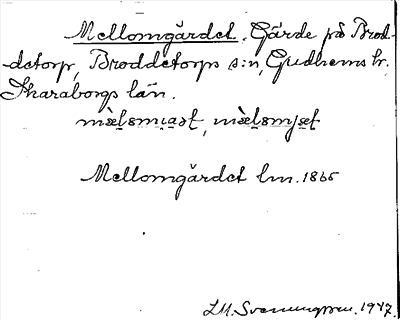 Mellomgärdet. Gärde på Brod-
detorp, Broddetorps s:n, Gudhems hr,
Skaraborgs län.
Mellomgärdet lm. 1865
L.M. Svenungsson. 1947.